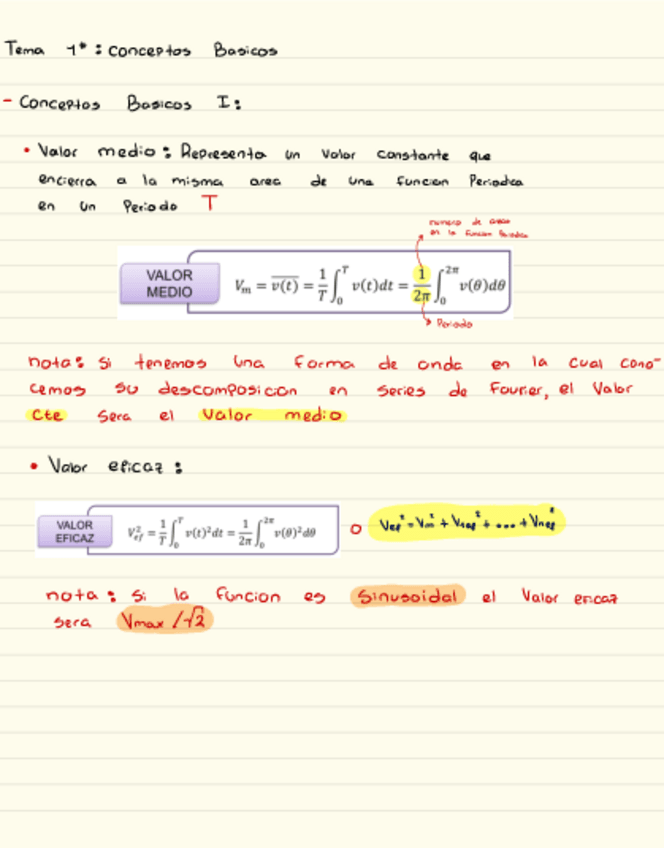 Tema 1* : Conceptos Basicos
- Conceptos Basicos I:
• Valor medio : Representa un valor constante que
encierra a la misma area de una funcion Periodica
en un Periodo T
numero de areas
en la funcion Periodica
VALOR MEDIO
V_m = \overline{v(t)} = \frac{1}{T} \int_0^T v(t)dt = \frac{1}{2\pi} \int_0^{2\pi} v(θ)dθ
Periodo
nota: Si tenemos una forma de onda en la cual cono-
cemos su descomposicion en series de Fourier, el Valor
cte sera el Valor medio
• Valor eficaz :
VALOR EFICAZ
V_{ef}^2 = \frac{1}{T} \int_0^T v(t)^2 dt = \frac{1}{2\pi} \int_0^{2\pi} v(θ)^2 dθ o V_{ef}^2 = V_m^2 + V_{1ef}^2 + ... + V_{nef}^2
nota : Si la funcion es Sinusoidal el Valor eficaz
sera Vmax /√2